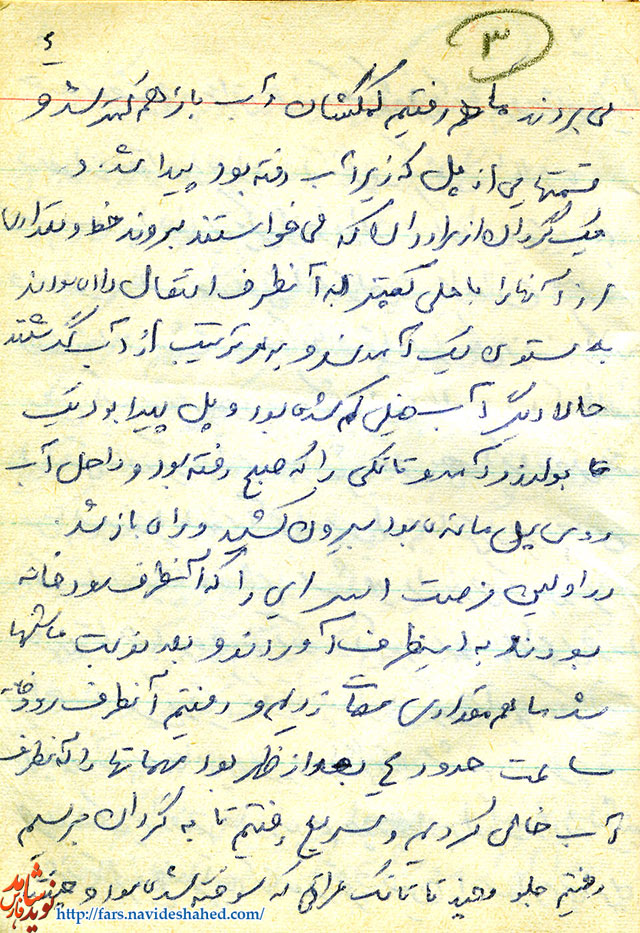 ۳
۴
می بردند ما هم رفتیم کمکشان و آب باز هم کمتر شد و
قسمتهایی از پل که زیر آب رفته بود پیدا شد. و
یک گردان از برادران که می خواستند بروند خط و مقداری
از آنها را با هلی کوپتر به آنطرف انتقال داده بودند
به ستون یک آمدند و به هر ترتیب از آب گذشتند
حالا دیگر آب خیلی کم شده بود و پل پیدا بود یک
بولدزر آمد و تانکی را که صبح رفته بود و داخل آب
روی پل مانده بود بیرون کشید و راه باز شد.
در اولین فرصت اسرایی را که آنطرف رودخانه
بودند به اینطرف آوردند و بعد نوبت ماشینها
شد ما هم مقداری زدیم و رفتیم آنطرف رودخانه
ساعت حدود ۴ بعد از ظهر بود مهماتها را آنطرف
آب خالی کردیم و سریع رفتیم تا به گردان برسیم
رفتیم جلو و چند تا تانک عراقی که سوخته شده بود و
نوید شاهد
فارس
http://fars.navideshahed.com/